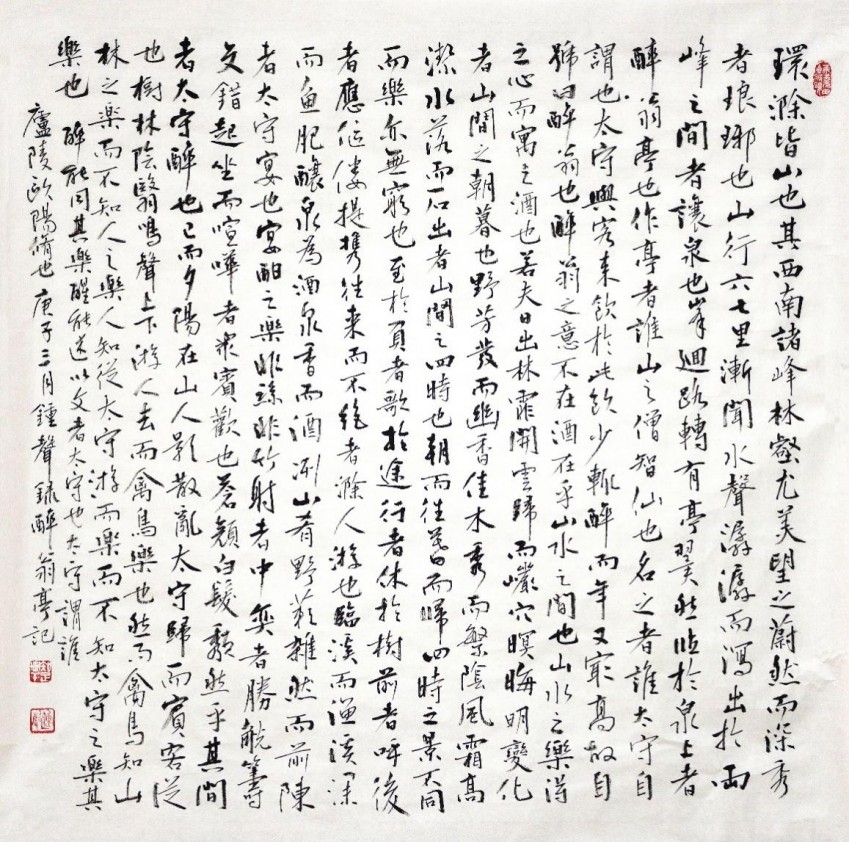 環滁皆山也其西南諸峰林壑尤美望之蔚然而深秀
者琅琊也山行六七里漸聞水聲潺潺而瀉出於兩
峰之間者讓泉也峯迴路轉有亭翼然臨於泉上者
醉翁亭也作亭者誰山之僧智仙也名之者誰太守自
謂也太守與客來飲於此飲少輒醉而年又最高故自
號曰醉翁也醉翁之意不在酒在乎山水之間也山水之樂得
之心而寓之酒也若夫日出林霏開雲歸而巖穴暝晦明變化
者山間之朝暮也野芳發而幽香佳木秀而繁陰風霜高
潔水落而石出者山間之四時也朝而往暮而歸四時之景不同
而樂亦無窮也至於負者歌於途行者休於樹前者呼後
者應傴僂提攜往來而不絶者滁人游也臨溪而漁溪深
而魚肥釀泉為酒泉香而酒洌山肴野蔌雜然而前陳
者太守宴也宴酣之樂非絲非竹射者中奕者勝觥籌
交錯起坐而喧嘩者眾賓歡也蒼顏白髮頹然乎其間
者太守醉也已而夕陽在山人影散亂太守歸而賓客從
也樹林陰翳鳴聲上下游人去而禽鳥樂也然而禽鳥知山
林之樂而不知人之樂人知從太守游而樂而不知太守之樂其
樂也醉能同其樂醒能述以文者太守也太守謂誰
廬陵歐陽脩也庚子三月鍾聲錄醉翁亭記